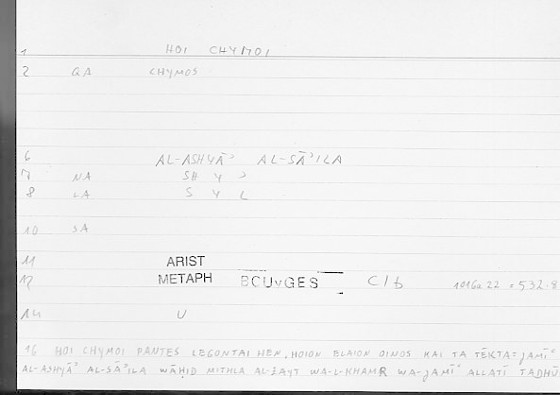 1 HOI CHYMOI
2 GA CHYMOS
6 AL-ASHYĀʾ AL-SĀʾILA
7 NA SH Y ʾ
8 LA S Y L
10 SA
11 ARIST
12 METAPH BOUYGES C/b 1016a 22 = 532.8
14 U
16 HOI CHYMOI PANTES LEGONTAI HEN, HOION ELAION OINOS KAI TA TĒKTA = JAMĪʿ
AL-ASHYĀʾ AL-SĀʾILA WĀḤID MITHLA AL-ZAYT WA-L-KHAMR WA-JAMĪʿ ALLATĪ TADHŪ